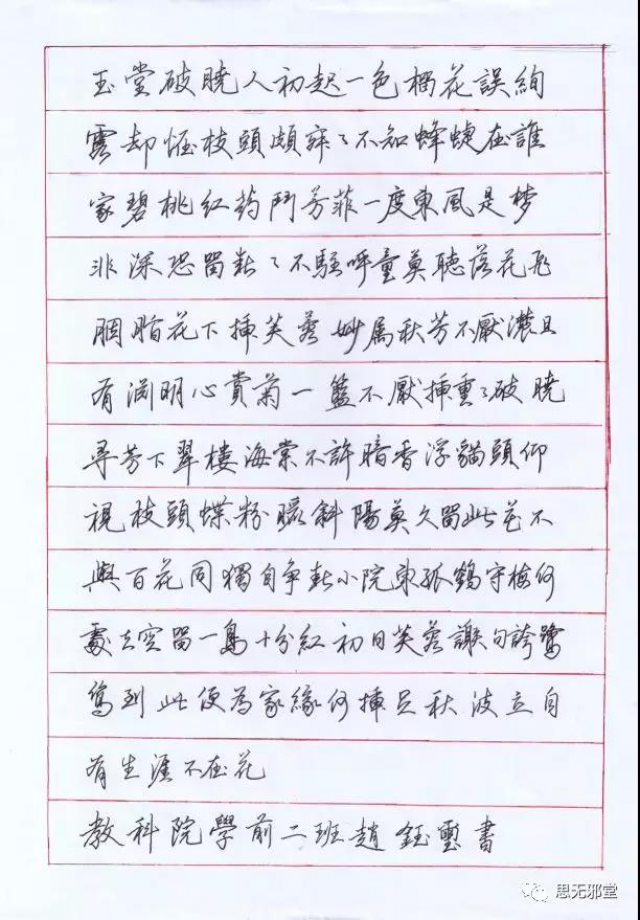 玉堂破曉人初起一色榴花誤絢
雲却恠枝頭頗寂々不知蜂蜨在誰
家碧桃红药鬥芳菲一度東風是梦
非深恐留春々不駐呼童莫聽落花飛
胭脂花下揷芙蓉妙属秋芳不厭濃且
有渊明心賞菊一籃不厭揷重々破曉
尋芳下翠樓海棠不許暗香浮貓頭仰
視枝頭蝶粉暖斜陽莫久留此花不
與百花同獨自争春小院東孤鶴守梅何
處去空留一鳥十分红初日芙蓉謝句誇鷺
鸶到此便為家緣何揷足秋波立自
有生涯不在花
教科院學前二班趙鈺璽書
思无邪堂